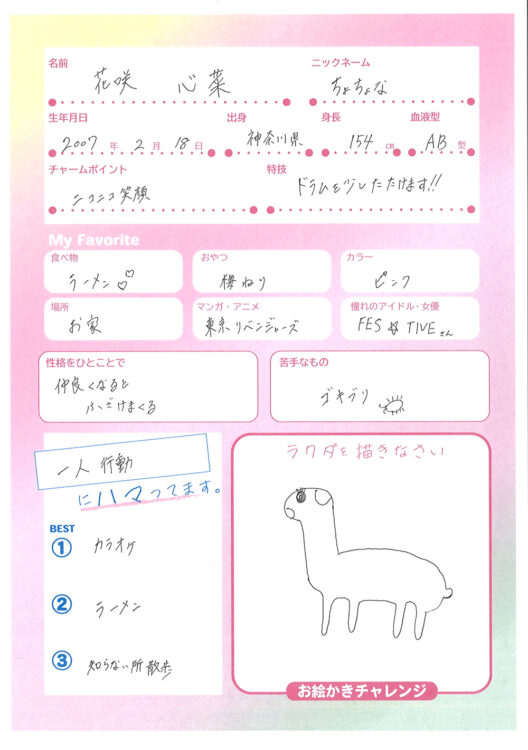 名前
花咲 心菜
ニックネーム
ちょちょな
生年月日
2007年2月18日
出身
神奈川県
身長
154cm
血液型
AB型
チャームポイント
ニコニコ笑顔
特技
ドラムを少したたけます!!
My Favorite
食べ物
ラーメン♡
おやつ
梅ねり
カラー
ピンク
場所
お家
マンガ・アニメ
東京リベンジャーズ
憧れのアイドル・女優
FES☆TIVEさん
性格をひとことで
仲良くなると
ふざけまくる
苦手なもの
ゴキブリ
一人行動
にハマってます。
BEST
① カラオケ
② ラーメン
③ 知らない所散歩
ラクダを描きなさい
お絵かきチャレンジ